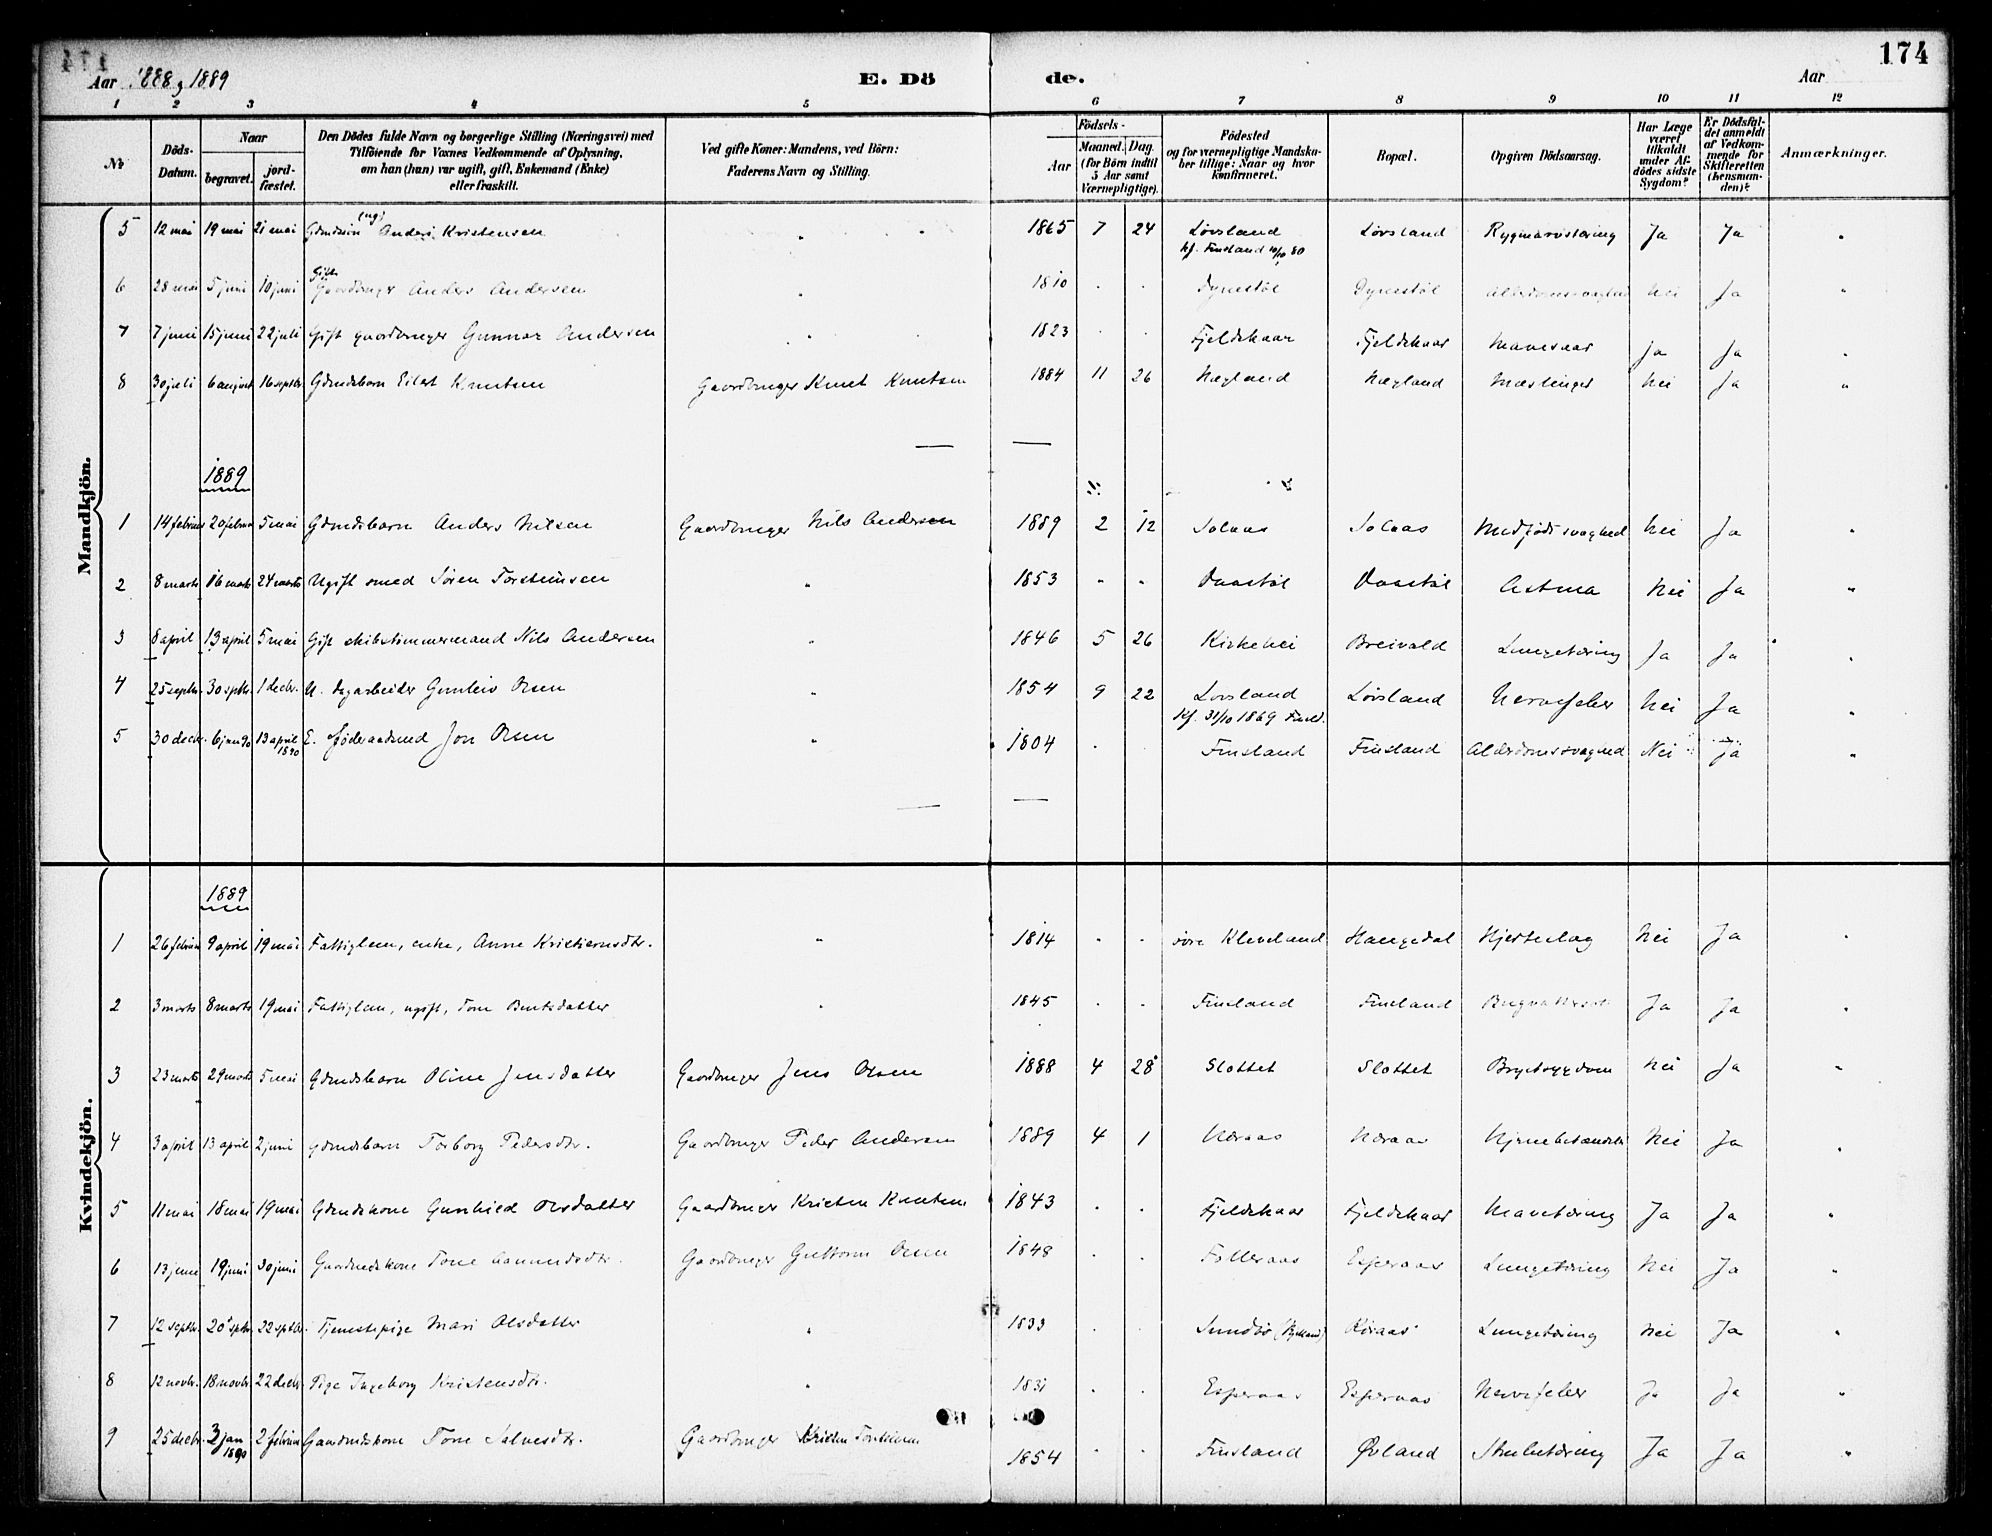 174
Aar 1888 og 1889
E. Dö de.
Aar
1 2 3 4 5 6 7 8 9 10 11 12
No
Döds-Datum.
Naar
begravet.
jord-fæstet.
Den Dödes fulde Navn og borgerlige Stilling (Næringsvei) med
Tilföiende for Voxnes Vedkommende af Oplysning,
om han (hun) var ugift, gift, Enkemand (Enke)
eller fraskilt.
Ved gifte Koner: Mandens, ved Börn:
Faderens Navn og Stilling.
Födsels-
Aar
Maaned. Dag.
(for Börn indtil
5 Aar samt
Værnepligtige).
Födested
og for værnepligtige Mandska-
ber tillige: Naar og hvor
konfirmeret.
Bopæl.
Opgiven Dödsaarsag.
Har Læge
været
tilkaldt
under Af-
dödes sidste
Sygdom?
Er Dödsfal-
det anmeldt
af Vedkom-
mende for
Skifteretten
(Lensman-
den)?
Anmærkninger.
Mandkjön.
5 12 mai 19 mai 21 mai Gdmdssön (ug) Anders Kristensen " " 1865 7 24 Lövsland Lövsland Rygmarvstæring Ja Ja "
kf. Finsland 10/10 80
Gift
6 28 mai 5 juni 10 juni Gaardbruger Anders Andersen " 1810 " " Dynestöl Dynestöl Alderdomssvaghed Nei Ja "
7 7 juni 15 juni 22 juli Gift gaardbruger Gunnar Andersen " 1823 " " Fjeldskaar Fjeldskaar Mavesaar Ja Ja "
8 30 juli 6 august 16 septbr Gdmdsbarn Eilert Knutsen Gaardbruger Knut Knutsen 1884 11 26 Nægland Nægland Mæslinger Nei Ja "
1889
1 14 februar 20 februar 5 mai Gdmdsbarn Anders Nilsen Gaardbruger Nils Andersen 1889 2 12 Solaas Solaas Medfødt svaghed Nei Ja "
2 8 marts 16 marts 24 marts Ugift smed Sören Torsteinsen " 1853 " " Vaastöl Vaastöl Astma Nei Ja "
3 8 april 13 april 5 mai Gift skibstimmermand Nils Andersen " 1846 5 26 Kirkehei Breivald Lungetæring Ja Ja "
4 25 septbr. 30 septbr 1 decbr. U. dagarbeider Gunleiv Olsen " 1854 9 22 Lövsland Lövsland Nervefeber Nei Ja "
Kf. 31/10 1869 Finsl.
5 30 decbr. 6 jan 90 13 april 1890 E. föderaadsmd Jon Olsen " 1804 " Finsland Finsland Alderdomssvaghed Nei Ja "
Kvindekjön.
1889
1 26 februar 9 april 19 mai Fattiglem, enke, Anne Kristiansdtr. " 1814 " " söre Kleveland Haugedal Hjerteslag Nei Ja "
2 3 marts 8 marts 19 mai Fattiglem, ugift, Tone Bentsdatter " 1845 " " Finsland Finsland Ja Ja "
3 23 marts 29 marts 5 mai Gdmdsbarn Oline Jensdatter Gaardbruger Jens Olsen 1888 4 28 Slottet Slottet Brystsygdom Nei Ja "
4 3 april 13 april 2 juni Gdmdsbarn Torborg Pedersdtr. Gaardbruger Peder Andersen 1889 4 1 Næraas Næraas Hjernebetændelse Nei Ja "
5 11 mai 18 mai 19 mai Gdmdskone Gunhild Olsdatter Gaardbruger Kristen Knutsen 1843 " " Fjeldskaar Fjeldskaar Mavetæring Ja Ja "
6 13 juni 19 juni 30 juni Gaardmdskone Tone Aanundsdtr. Gaardbruger Guttorm Olsen 1848 " " Folleraas Esperaas Lungetæring Nei Ja "
7 12 septbr. 20 septbr. 22 septbr. Tjenestepige Mari Olsdatter " 1833 " " Sundbö Röraas Lungetæring Nei Ja "
8 12 novbr. 18 novbr. 22 decbr. Pige Ingeborg Kristensdtr. " 1831 " " Esperaas Esperaas Nervefeber Ja Ja "
9 25 decbr. 3 jan 1890 2 februar Gaardmdskone Tone Salvesdtr. Gaardbruger Kristen Torkelsen 1854 " " Finsland Øvland Strubetæring Ja Ja "